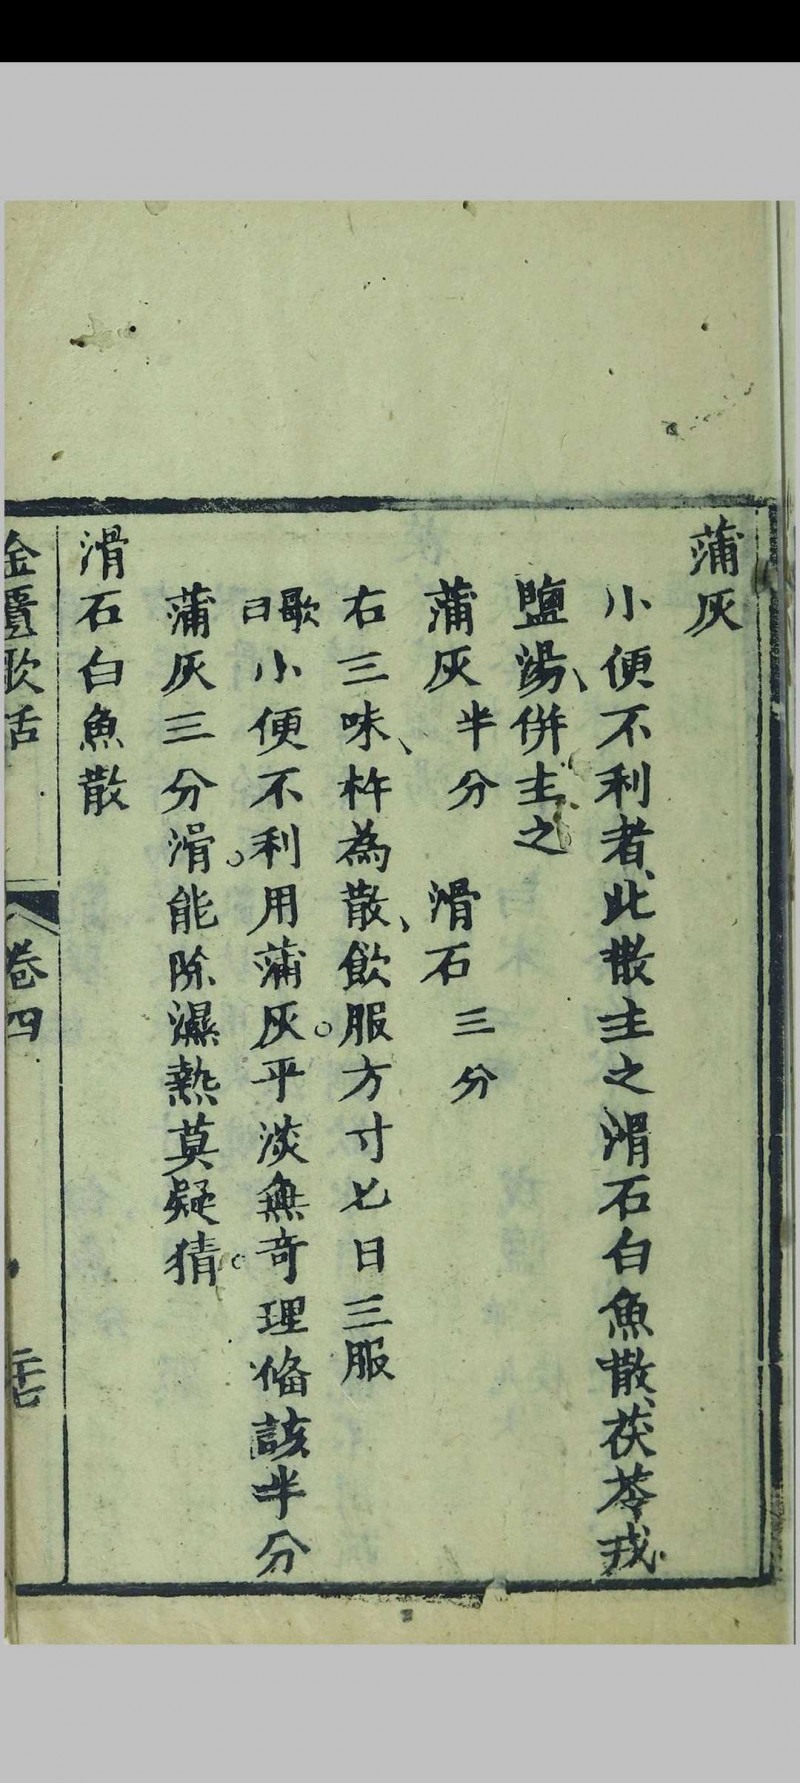 蒲灰
小便不利者、此散主之滑石白魚散、茯苓戎
鹽湯、併主之
蒲灰半分　滑石三分
右三味、杵為散、飲服方寸匕日三服
歌曰小便不利用蒲灰。平淡無奇理偹該半分
蒲灰三分滑。能除濕熱莫疑猜。
滑石白魚散
金匱歌括　卷四　二十七